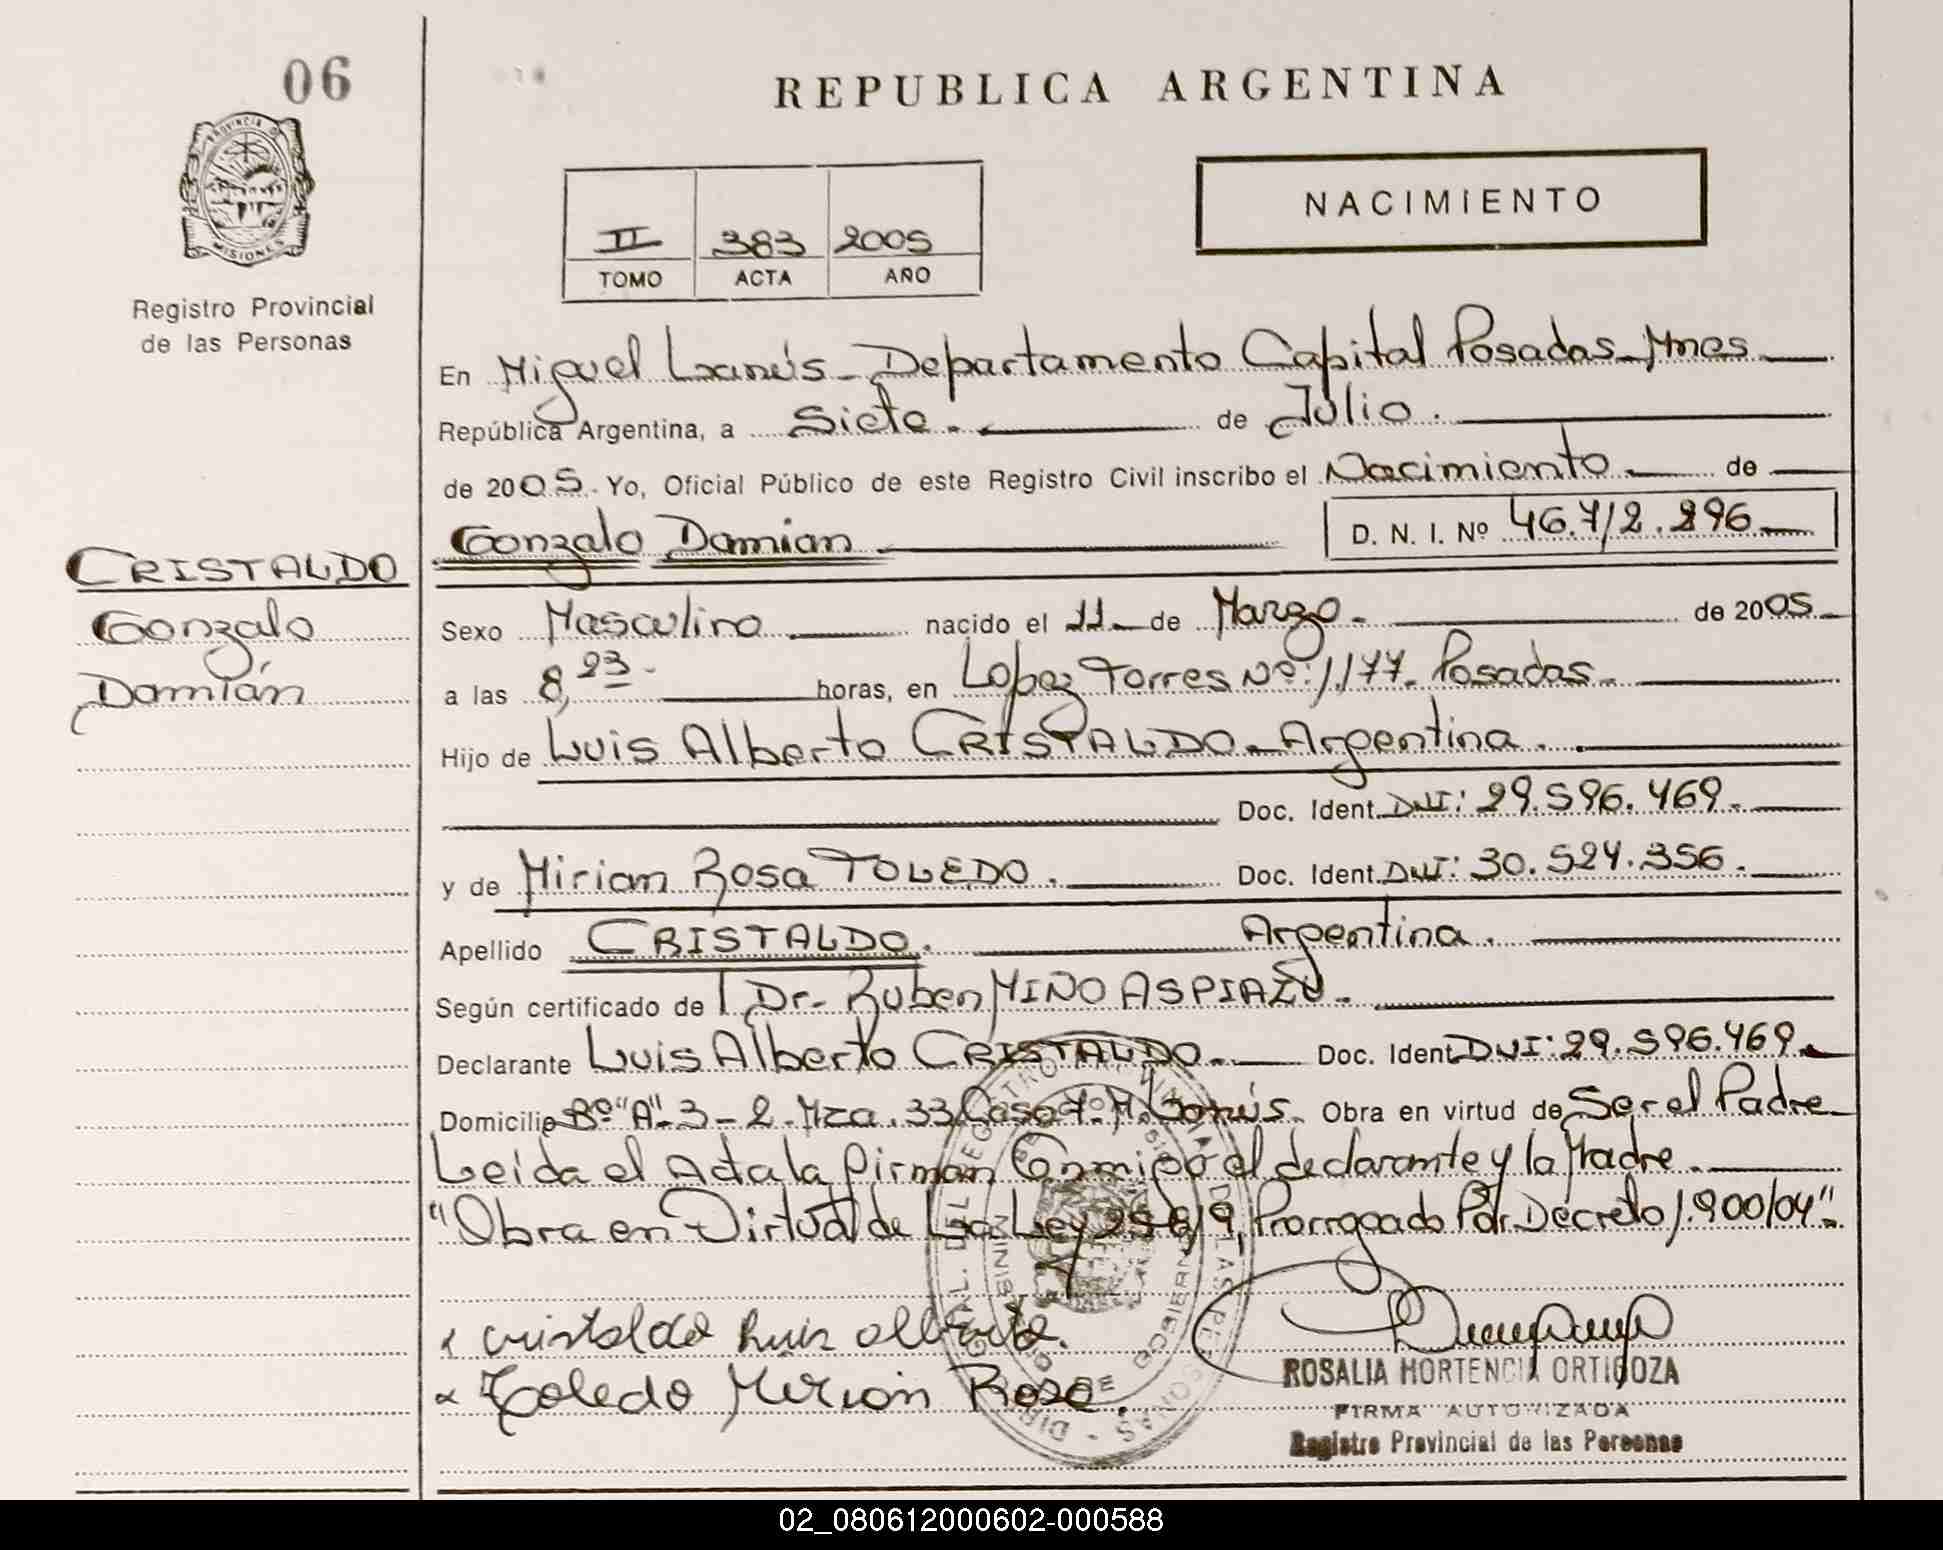 06
REPUBLICA ARGENTINA
PROVINCIA D
MISIONES
Registro Provincial
de las Personas
NACIMIENTO
II 383 2005
TOMO ACTA AÑO
En Miguel Lanús - Departamento Capital Posadas - Mnes
República Argentina, a Siete. de Julio.
de 2005. Yo, Oficial Público de este Registro Civil inscribo el Nacimiento de
Gonzalo Damian D. N. I. Nº 46.712.296
CRISTALDO
Gonzalo
Damián
Sexo Masculino nacido el 11 de Marzo. de 2005
a las 8,23 horas, en Lopez Torres Nº: 1.177. Posadas.
Hijo de Luis Alberto CRISTALDO - Argentina.
Doc. Ident. DNI: 29.596.469.
y de Mirian Rosa TOLEDO. Doc. Ident. DNI: 30.524.356.
Apellido CRISTALDO. Argentina.
Según certificado de Dr. Ruben MIÑO ASPIAZU.
Declarante Luis Alberto CRISTALDO. Doc. Ident DNI: 29.596.469
Domicilio Bº "A" 3-2. Mza. 33 Casa 7. M. Lanús. Obra en virtud de Ser el Padre
Leida el Acta la firman Conmigo el declarante y la Madre.
"Obra en Virtud de La Ley 25.819, Prorrogado Por Decreto 1.900/04".
Cristaldo Luis Alberto.
Toledo Mirian Rosa.
ROSALIA HORTENCIA ORTIGOZA
FIRMA AUTORIZADA
Registro Provincial de las Personas
02_080612000602-000588